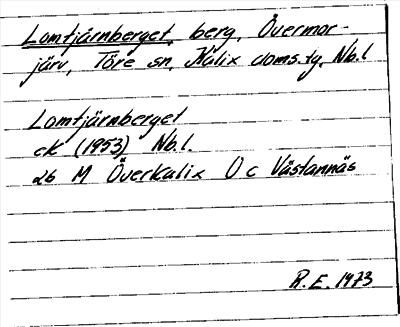 Lomtjärnberget, berg, Övermor-
järv, Töre sn, Kalix doms.tg, Nb.l
Lomtjärnberget
ek (1953) Nb.l.
26 M Överkalix O c Västannäs
R.E. 1973